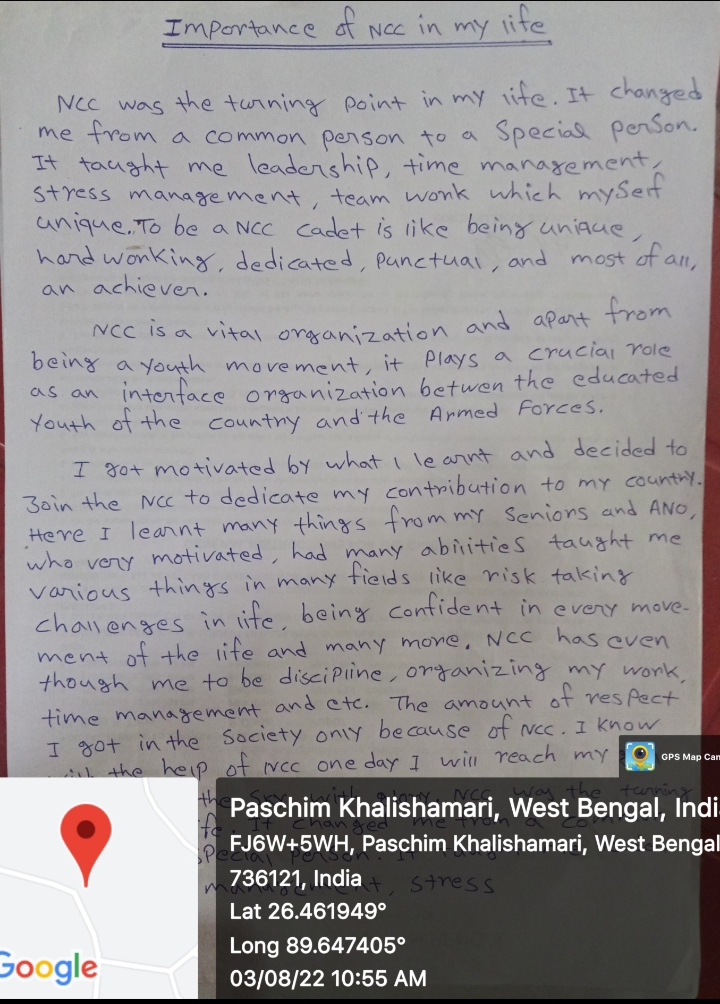 Importance of NCC in my life
NCC was the turning point in my life. It changed
me from a common person to a Special person.
It taught me leadership, time management,
stress management, team work which myself
unique. To be a NCC cadet is like being unique,
hard working, dedicated, punctual, and most of all,
an achiever.
NCC is a vital organization and apart from
being a youth movement, it plays a crucial role
as an interface organization betwen the educated
Youth of the country and the Armed Forces.
I got motivated by what I learnt and decided to
Join the NCC to dedicate my contribution to my country.
Here I learnt many things from my Seniors and ANO,
who very motivated, had many abilities taught me
various things in many fields like risk taking
challenges in life, being confident in every move-
ment of the life and many more. NCC has even
though me to be discipline, organizing my work,
time management and etc. The amount of respect
I got in the Society only because of NCC. I know
the help of NCC one day I will reach my
the Sky with NCC was the turning
life. It changed me from a
Special person. It
management, stress
GPS Map Cam
Paschim Khalishamari, West Bengal, Indi
FJ6W+5WH, Paschim Khalishamari, West Bengal
736121, India
Lat 26.461949°
Long 89.647405°
03/08/22 10:55 AM
Google